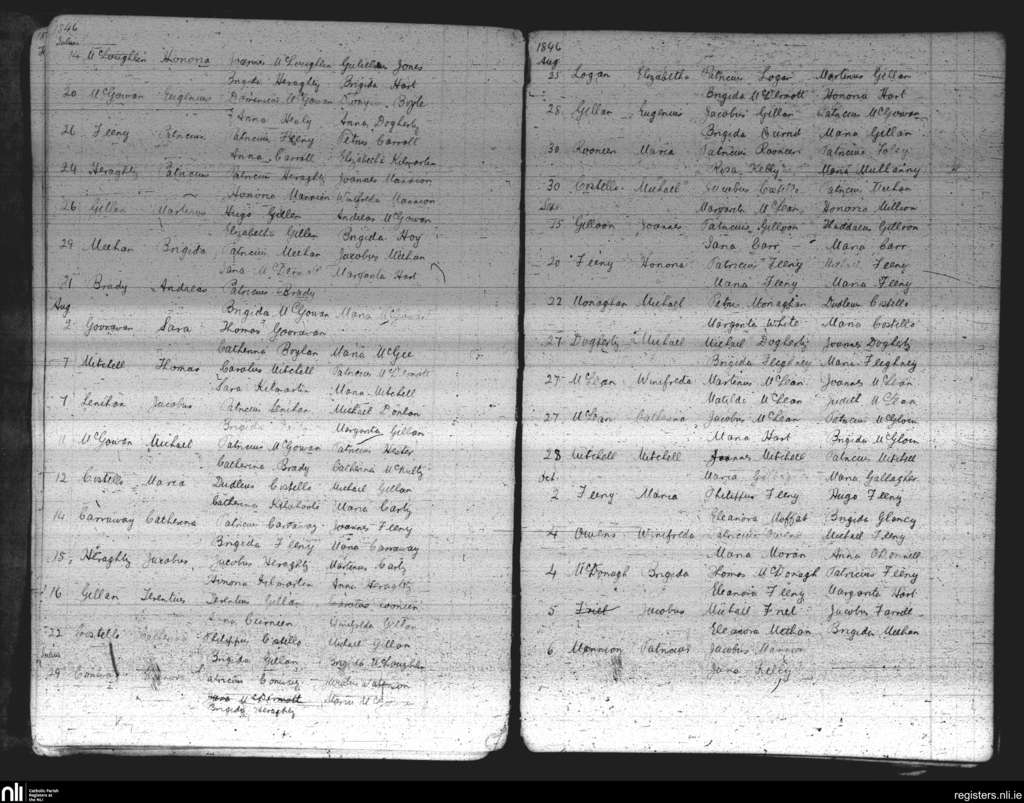 1846
Julius
14 McLoughlin Honoria McLoughlin Gulielmus Jones
Brigida Heraghty Brigida Hart
20 McGowan Eugenius Dominicus McGowan Boyle
Anna Healy Anna Dogherty
26 Feeny Patricius Patricius Feeny Petrus Carroll
Anna Carroll Elizabeth Kilmartin
24 Heraghty Patricius Patricius Heraghty Joannes Mannion
Honoria Mannion Winifreda Mannion
26 Gillan Martinus Hugo Gillen Andreas McGowan
Elizabeth Gillen Brigida Hoy
29 Meehan Brigida Patricius Meehan Jacobus Meehan
Jana McDermott Margarita Hart
31 Brady Andreas Patricius Brady
Aug
Brigida McGowan Maria McGowan
2 Goonavan Sara Thomas Goonavan
Catherina Boylan Maria McGee
7 Mitchell Thomas Carolus Mitchell Patricius McDermott
Sara Kilmartin Maria Mitchell
9 Lenihan Jacobus Patricius Lenihan Michael Donlan
Brigida Margarita Gillan
11 McGowan Michael Patricius McGowan Patricius Hester
Catherina Brady Catherina McNulty
12 Costello Maria Dudleus Costello Michael Gillan
Catherina Maria Carty
14 Carraway Catherina Patricius Carraway Joannes Feeny
Brigida Feeny Maria Carraway
15 Heraghty Jacobus Jacobus Heraghty Martinus Carty
Honoria Kilmartin Anna Heraghty
16 Gillan Terentius Terentius Gillan
Curneen Winifreda
22 Costello Catherina Philippus Costello Michael Gillan
Brigida Gillan Brigida McLoughlin
Julius
29 Patricius
Jana McDermott Maria
Brigida Heraghty
1846
Aug
25 Logan Elizabetha Patricius Logan Martinus Gillan
Brigida McDermott Honoria Hart
28 Gillan Eugenius Jacobus Gillan Patricius McGowan
Brigida Maria Gillan
30 Rooneen Maria Patricius Rooneen Patricius Foley
Rosa Kelly Maria Mulhanny
30 Costello Michael Jacobus Costello Patricius Meehan
Sep
Margarita McLean Honoria
15 Gilloon Joannes Patricius Gilloon Thaddaeus Gilloon
Jana Carr Maria Carr
20 Feeny Honoria Patricius Feeny Michael Feeny
Maria Feeny Maria Feeny
22 Monaghan Michael Petrus Monaghan Dudleus Costello
Margarita White Maria Costello
27 Dogherty Michael Michael Dogherty Joannes Dogherty
Brigida Fleghney Maria Fleghney
27 McLean Winifreda Martinus McLean Joannes McLean
Matilda McLean Judith McLean
27 McLean Catherina Jacobus McLean Patricius McGloin
Maria Hart Brigida McGloin
28 Mitchell Mitchell Joannes Mitchell Patricius Mitchell
Oct.
Maria Maria Gallagher
2 Feeny Maria Philippus Feeny Hugo Feeny
Eleanora Moffat Brigida Glancy
4 Owens Winifreda Patricius Owens Michael Feeny
Maria Moran Anna O'Donnell
4 McDonagh Brigida Thomas McDonagh Patricius Feeny
Eleanora Feeny Margarita Hart
5 Friel Jacobus Michael Friel Jacobus Farrell
Eleanora Meehan Brigida Meehan
6 Mannion Patricius Jacobus Mannion
Jana Kelly
nli Catholic Parish
Registers at
the NLI
registers.nli.ie